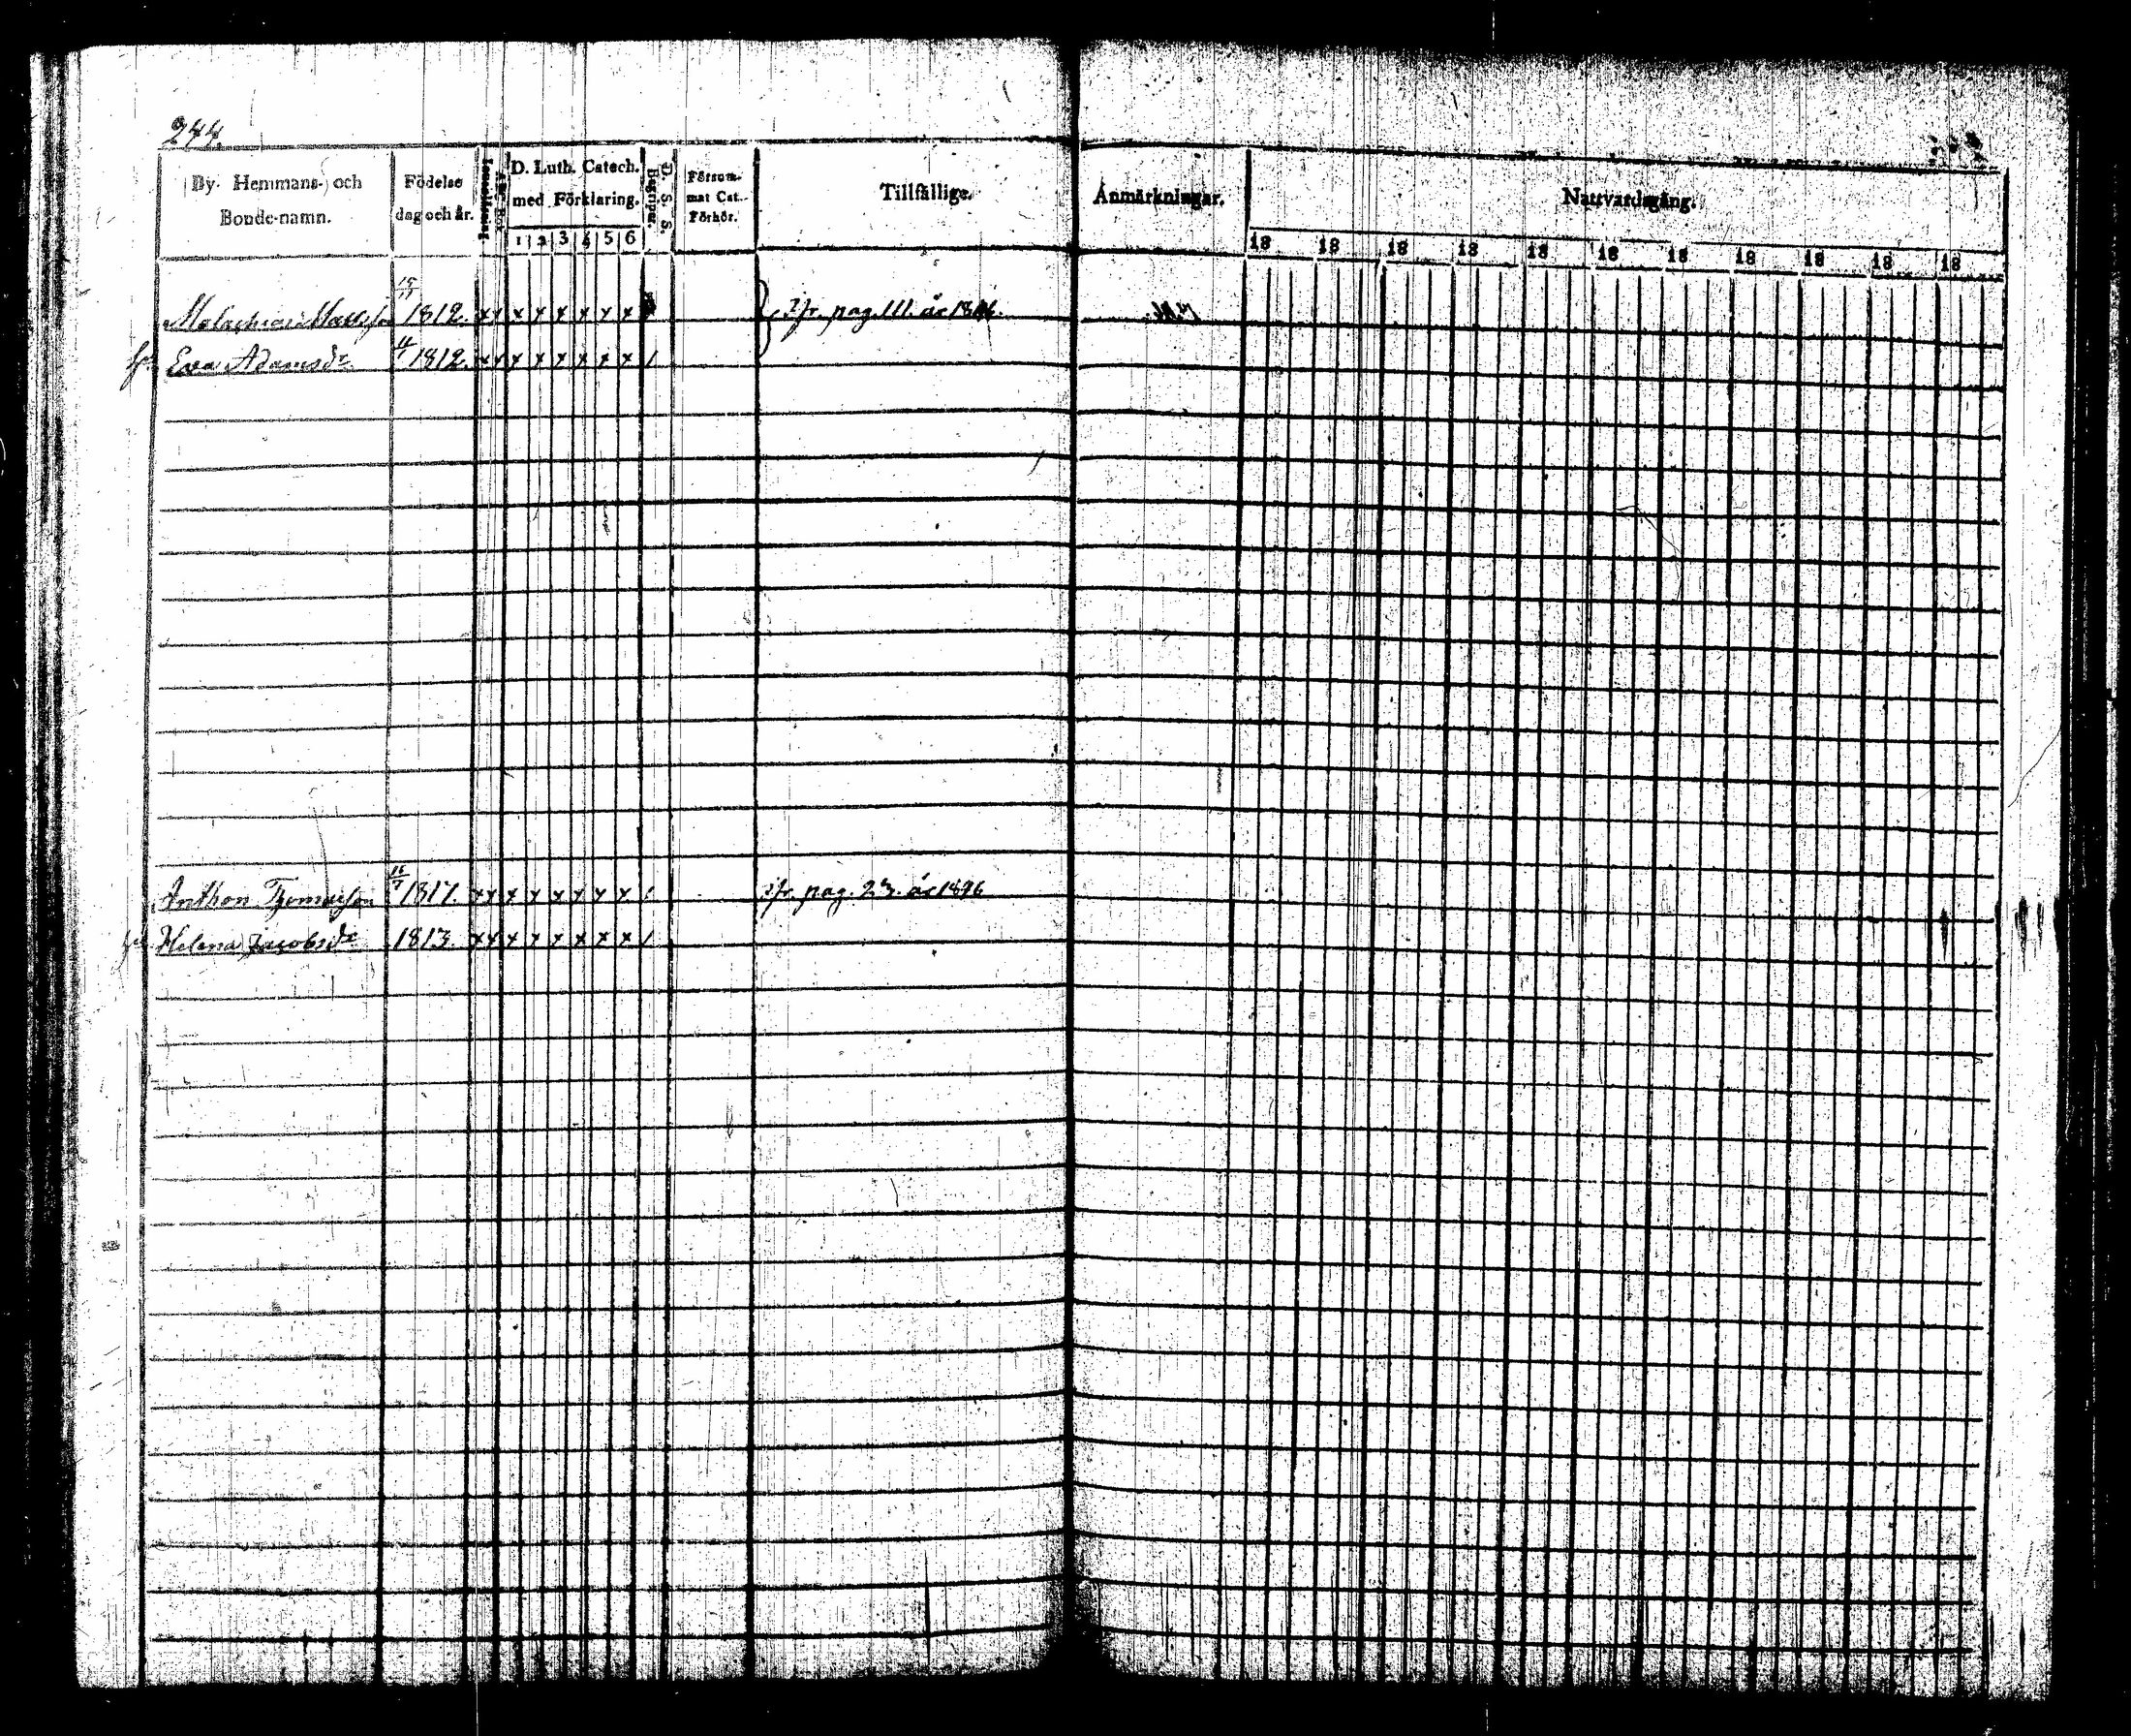 244.
By- Hemmans- och Bonde-namn.
Födelse dag och år.
Innanläsn.
D. Luth. Catech. med Förklaring.
1 2 3 4 5 6
D. S. S. Begripn.
Försum-mat Cat.-Förhör.
Tillfällige.
Anmärkningar.
Nattvardsgång.
18 18 18 18 18 18 18 18 18 18 18
Malachias Mattsson 15/11 1812. x x x x x x x x ifr. pag. 111. år 1846.
h. Eva Adamsdr 1812. x x x x x x x x /
Anthon Thomasson 16/7 1817. x x x x x x x x / ifr. pag. 23. år 1846
Helena Jacobsdr 1813. x x x x x x x x /